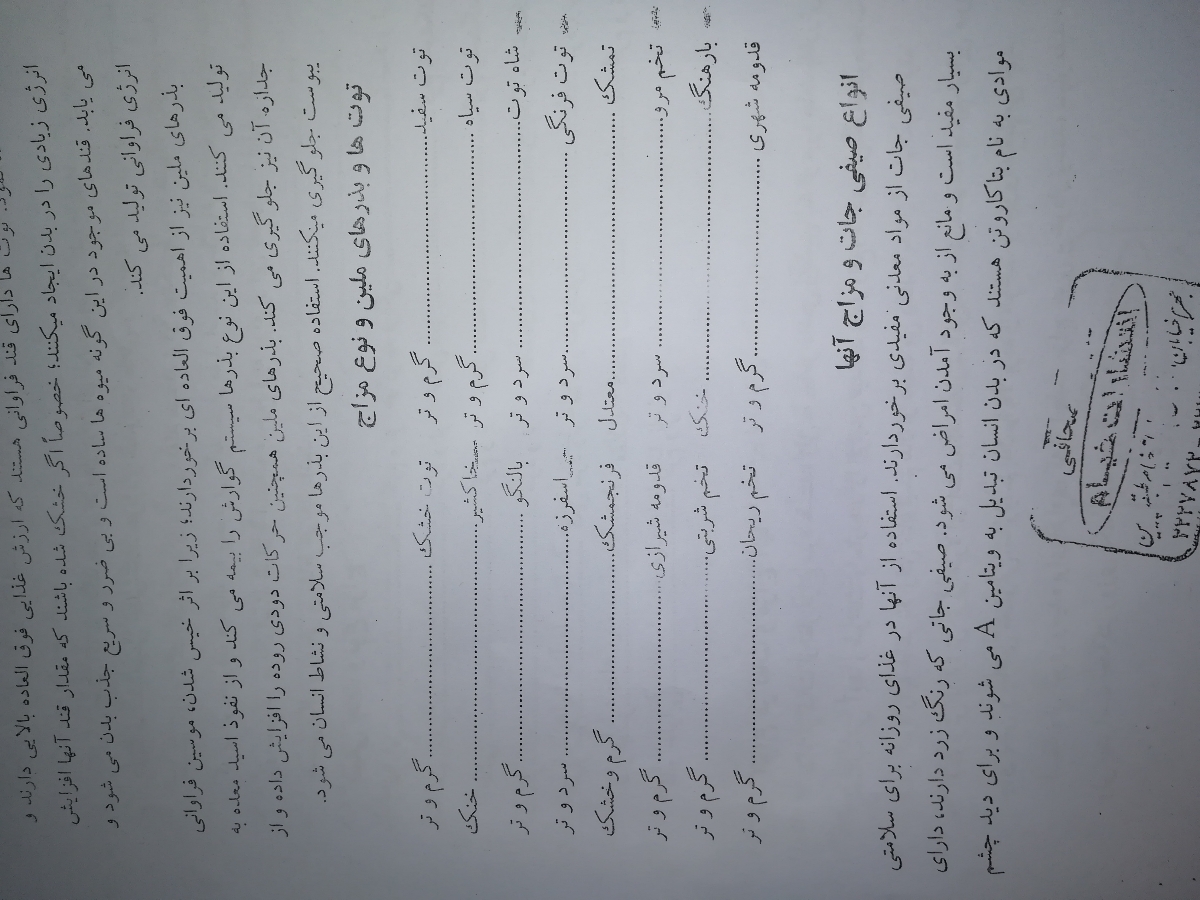 توت ها دارای قند فراوانی هستند که ارزش غذایی فوق العاده بالایی دارند و
انرژی زیادی را در بدن ایجاد میکنند؛ خصوصاً اگر خشک شده باشند که مقدار قند آنها افزایش
می یابد. قندهای موجود در این گونه میوه ها ساده است و بی ضرر و سریع جذب بدن می شود و
انرژی فراوانی تولید می کند.
بذرهای ملین نیز از اهمیت فوق العاده ای برخوردارند؛ زیرا بر اثر خیس شدن، موسین فراوانی
تولید می کنند. استفاده از این نوع بذرها سیستم گوارش را بیمه می کند و از نفوذ اسید معده به
جداره آن نیز جلوگیری می کند. بذرهای ملین همچنین حرکات دودی روده را افزایش داده و از
یبوست جلوگیری میکند. استفاده صحیح از این بذرها موجب سلامتی و نشاط انسان می شود.
توت ها و بذرهای ملین و نوع مزاج
توت سفید .......... گرم و تر توت خشک .......... گرم و تر
توت سیاه .......... گرم و تر خاکشیر .......... خنک
شاه توت .......... سرد و تر بالنگو .......... گرم و تر
توت فرنگی .......... سرد و تر اسفرزه .......... سرد و تر
تمشک .......... معتدل فرنجمشک .......... گرم و خشک
تخم مرو .......... سرد و تر قدومه شیرازی .......... گرم و تر
بارهنگ .......... خنک تخم شربتی .......... گرم و تر
قدومه شهری .......... گرم و تر تخم ریحان .......... گرم و تر
انواع صیفی جات و مزاج آنها
صیفی جات از مواد معدنی مفیدی برخوردارند. استفاده از آنها در غذای روزانه برای سلامتی
بسیار مفید است و مانع از به وجود آمدن امراض می شود. صیفی جاتی که رنگ زرد دارند، دارای
موادی به نام بتاکاروتن هستند که در بدن انسان تبدیل به ویتامین A می شوند و برای دید چشم
صحافی